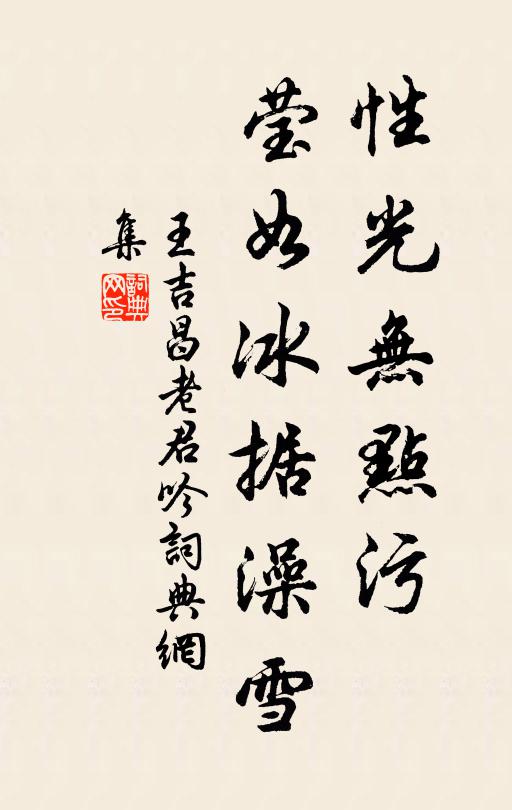 性光無點污
莹如冰据澡雪
王吉昌老君吟詞典網
集
詞典网印